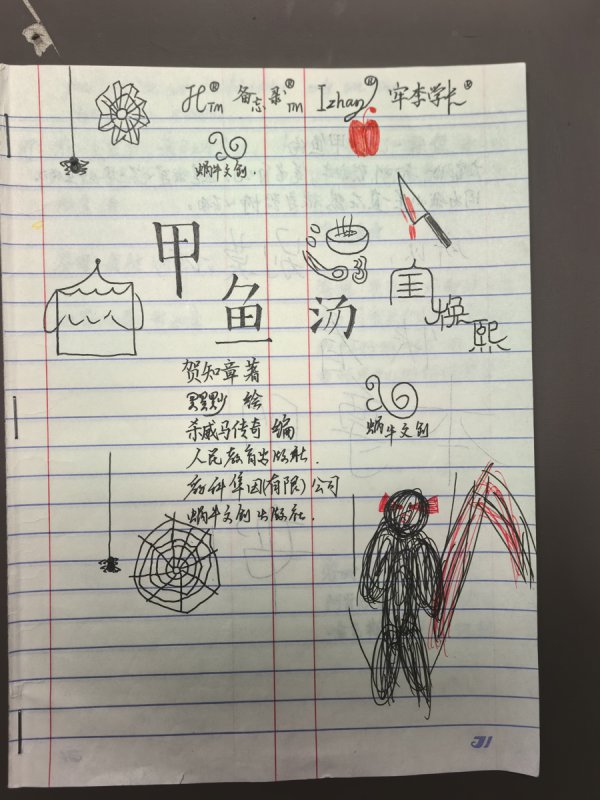 TM 备忘录® TM Izhang® 牢李学长®
蜗牛文创.
甲
鱼
汤
宜
焕
熙
贺知章 著
默默 绘
杀威马传奇 编
人民教育出版社.
教科集团(有限)公司
蜗牛文创出版社.
蜗牛文创